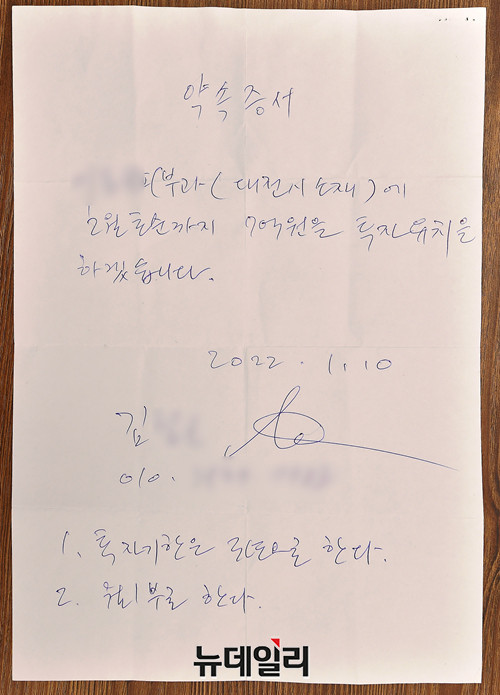 약속증서
피부과(대전시 소재)에
2월 초순까지 7억원을 투자유치를
하겠습니다.
2022. 1. 10
김
010.
1. 투자기한은 로 한다.
2. 부로 한다.
뉴데일리